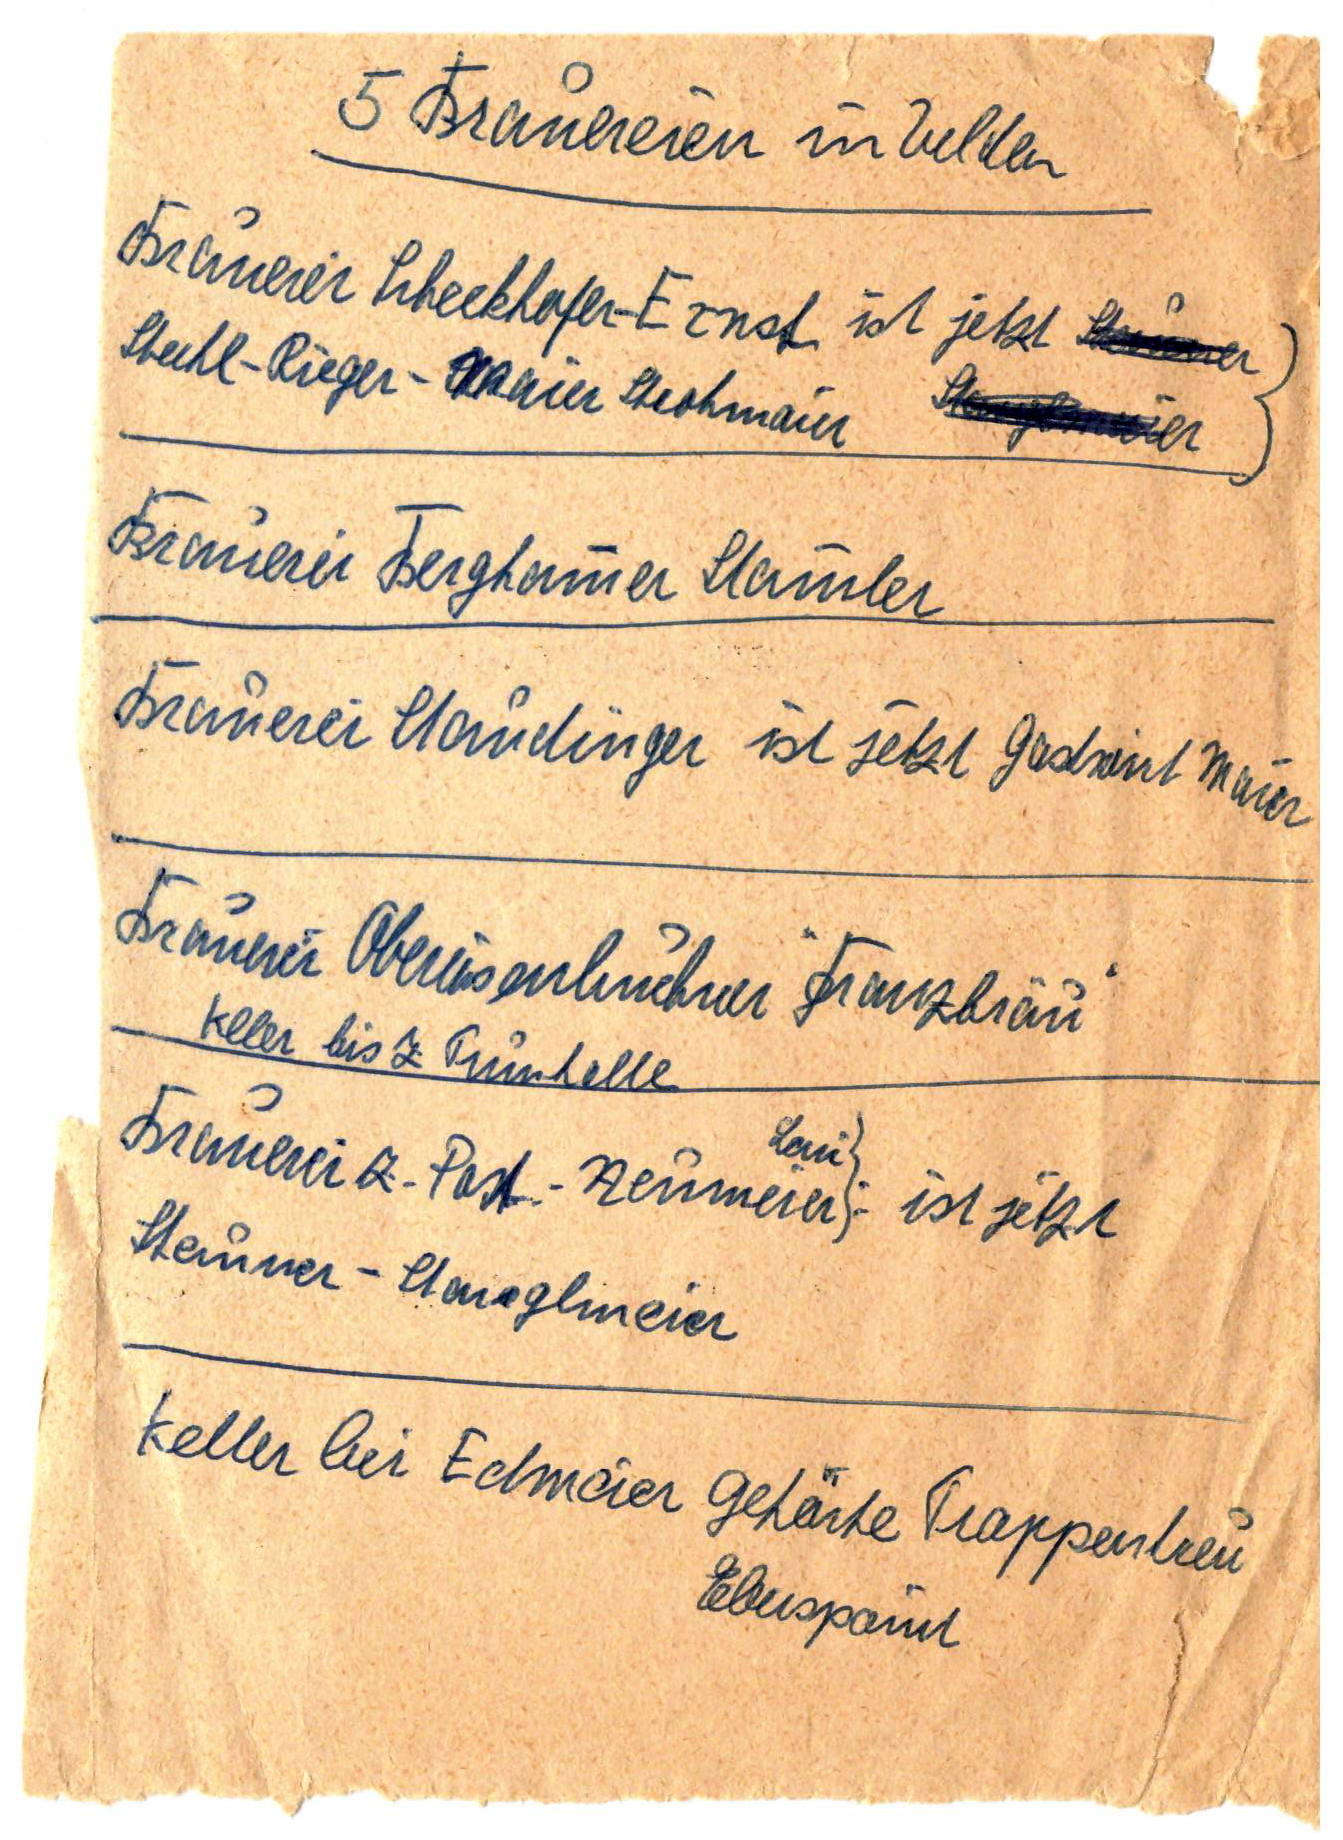 5 Brauereien in Velden
Brauerei Scheckhofer-Ernst ist jetzt
Stahl-Rieger-Maier Strohmaier
Brauerei Berghamer Stamler
Brauerei Staudinger ist jetzt Gastwirt Maier
Brauerei Obereisenbuchner "Franzbräu"
Keller bis z. Turnhalle
Brauerei z. Post - Neumeier } - ist jetzt
Steiner - Stanglmeier
Keller bei Edmeier gehörte Trappentreu
Eberspoint